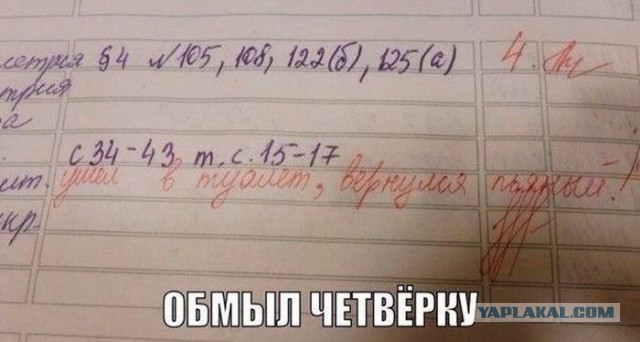 §4 №105, 108, 122(б), 125(а) 4.
с 34-43 т. с. 15-17
ушел в туалет, вернулся пьяный!
ОБМЫЛ ЧЕТВЁРКУ
YAPLAKAL.COM